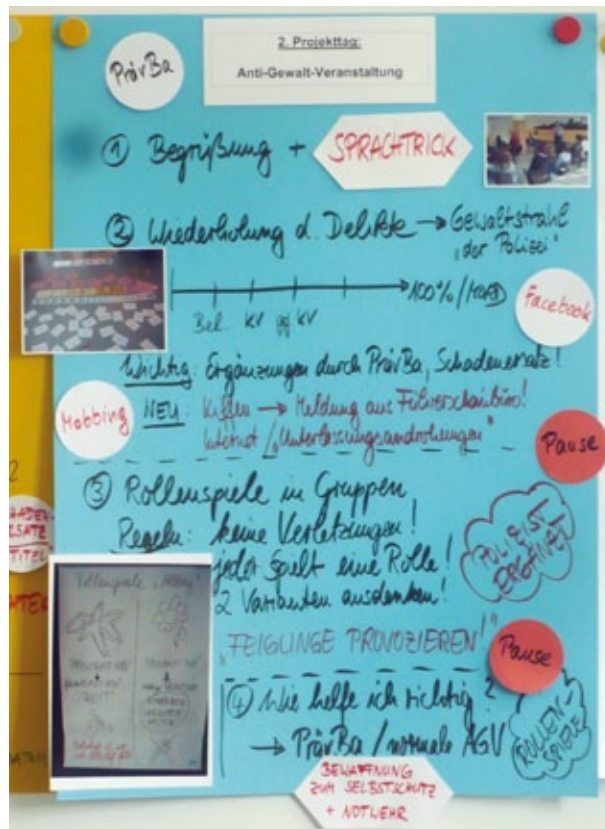 PrävBa
2. Projekttag:
Anti-Gewalt-Veranstaltung
① Begrüßung + SPRACHTRICK
② Wiederholung d. Delikte → Gewaltstrahl
„der Polizei“
Bel. KV gf KV → 100% / MORD
Facebook
Wichtig: Ergänzungen durch PrävBa, Schadenersatz!
Mobbing
NEU: Kiffen → Meldung ans Führerscheinbüro!
Internet / „Unterlassungsandrohungen“
Pause
③ Rollenspiele in Gruppen
Regeln: keine Verletzungen!
jeder spielt eine Rolle!
2 Varianten ausdenken!
POLIZIST ERGÄNZT
„FEIGLINGE PROVOZIEREN!“
Pause
④ Wie helfe ich richtig?
→ PrävBa / normale AGV
ROLLEN-
SPIELE
BEWAFFNUNG
ZUM SELBSTSCHUTZ
+ NOTWEHR
2
TITEL
Rollenspiele